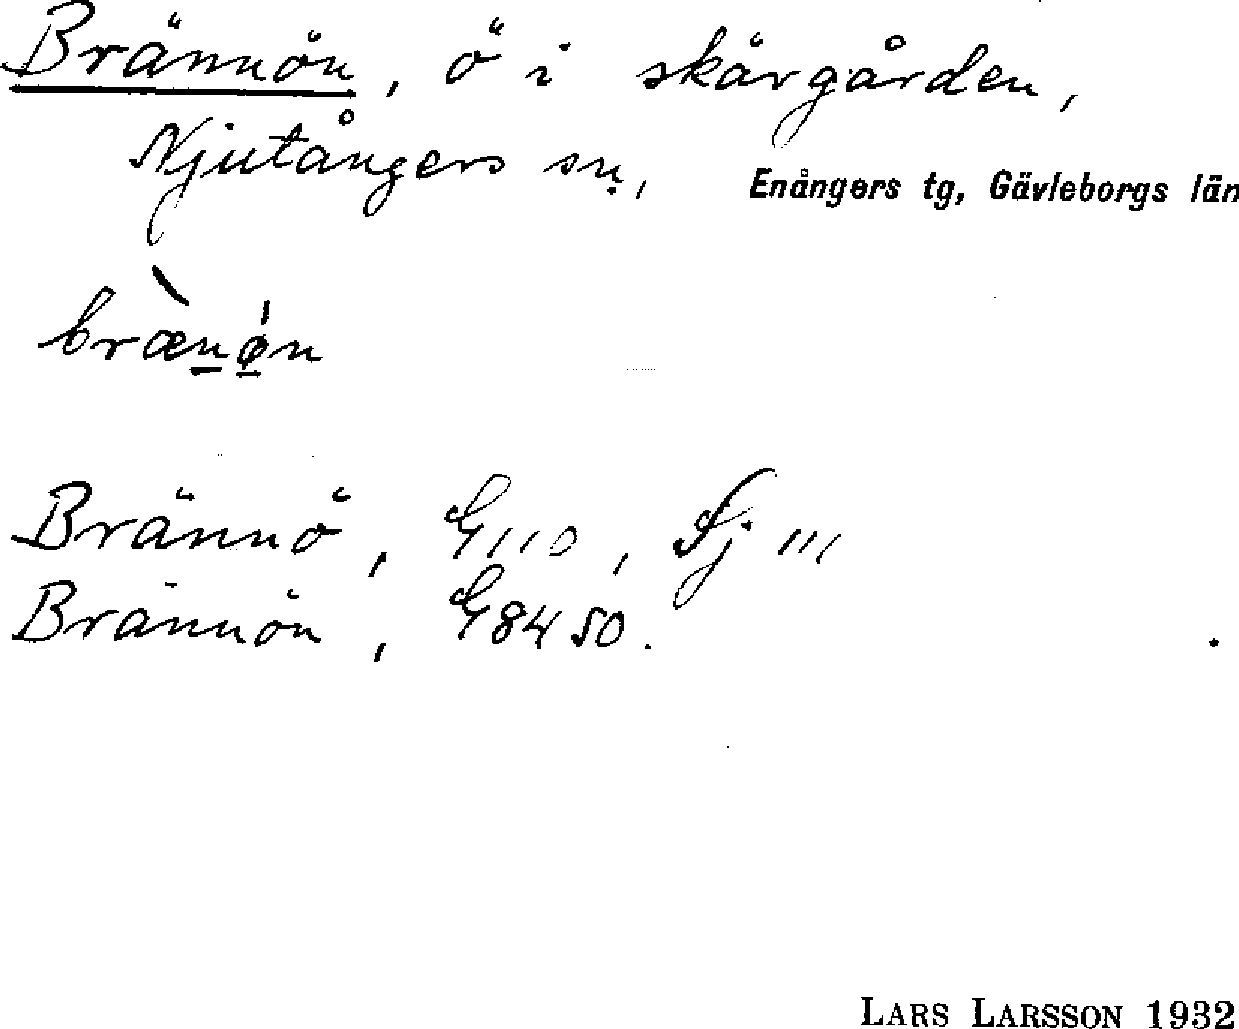 Brännön, ö i skärgården,
Njutångers sn, Enångers tg, Gävleborgs län
brænøn
Brännö, G110, Sj 111
Brännön, G8450.
LARS LARSSON 1932